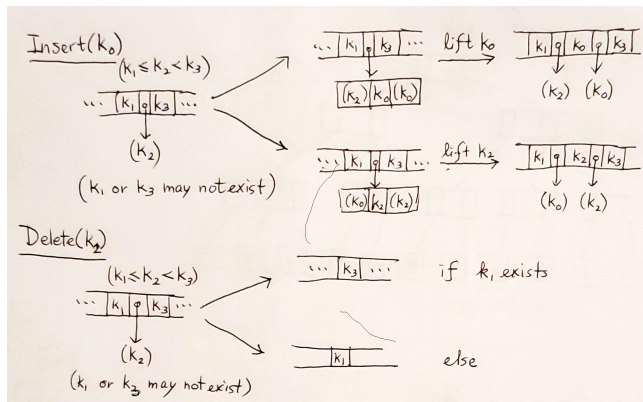 Insert(k₀)
(k₁ ≤ k₂ < k₃)
... k₁ k₃ ...
(k₂)
(k₁ or k₃ may not exist)
... k₁ k₃ ...
(k₂) k₀ (k₀)
lift k₀
k₁ k₀ k₃
(k₂) (k₀)
... k₁ k₃ ...
(k₀) k₂ (k₂)
lift k₂
k₁ k₂ k₃
(k₀) (k₂)
Delete(k₂)
(k₁ ≤ k₂ < k₃)
... k₁ k₃ ...
(k₂)
(k₁ or k₃ may not exist)
... k₃ ... if k₁ exists
k₁ else